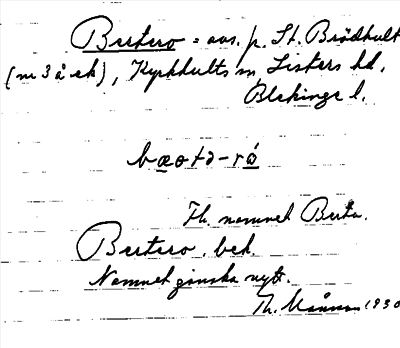 Bertero = avs. p. St. Brödhult
(m 3 å ek), Kyrkhults sn, Listers hd.
Blekinge l.
bæotə-ró
Fh. namnet Berta.
Bertero. bek.
Namnet ganska nytt.
Th. Månsson 1930